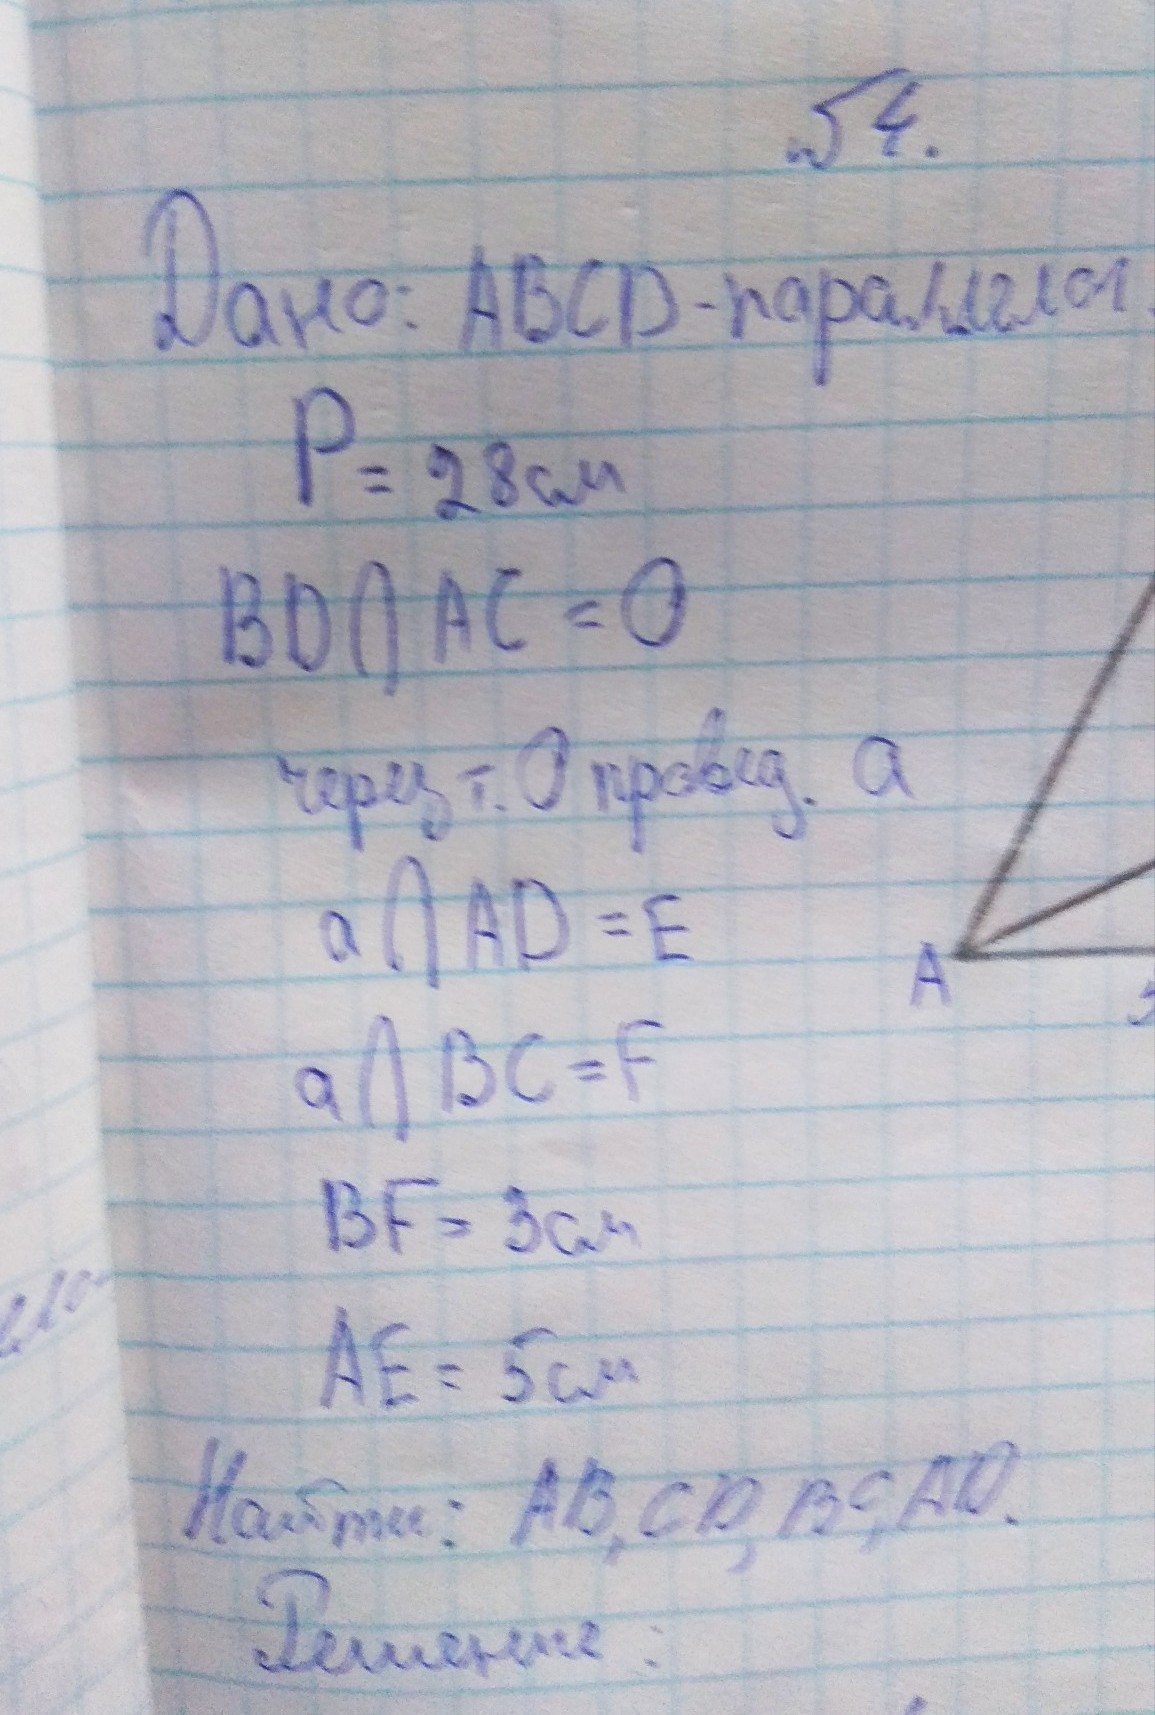 №4.
Дано: ABCD-параллелог.
P = 28см
BD⋂AC = O
через т. O провед. a
a⋂AD = E
a⋂BC = F
BF = 3см
AE = 5см
Найти: AB, CD, BC, AD.
Решение:
A